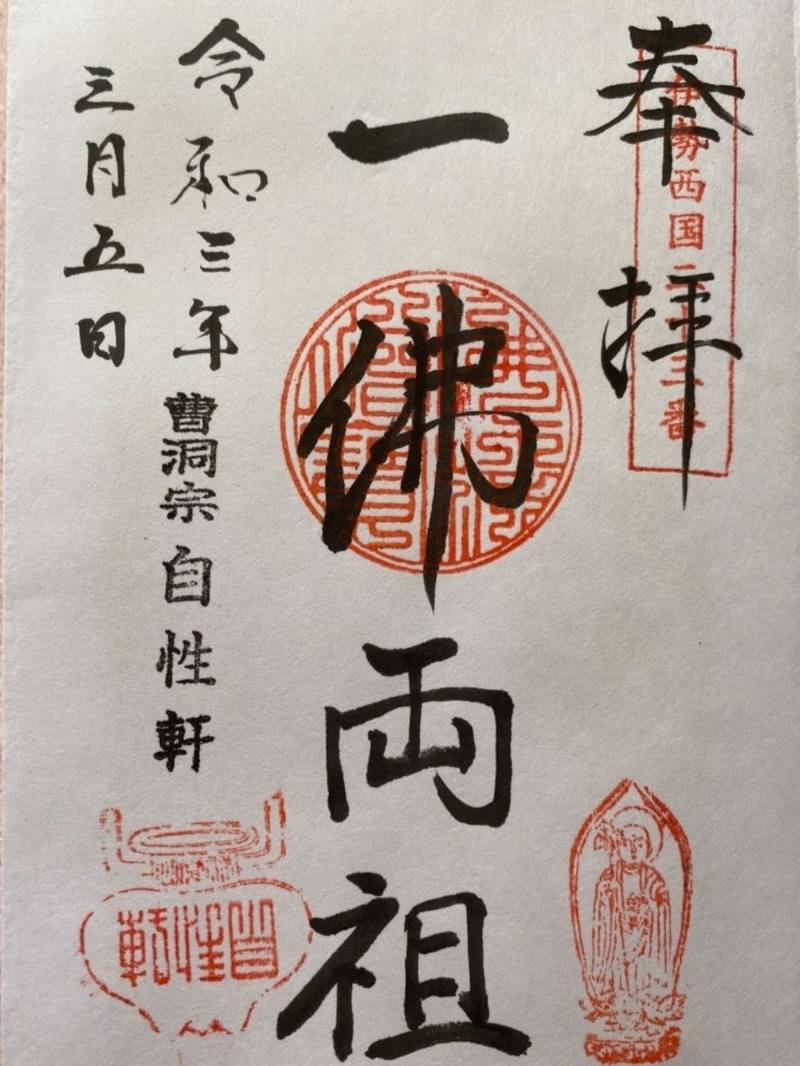 奉拝
伊勢西国二十三番
一佛両祖
令和三年
曹洞宗自性軒
三月五日
自性軒